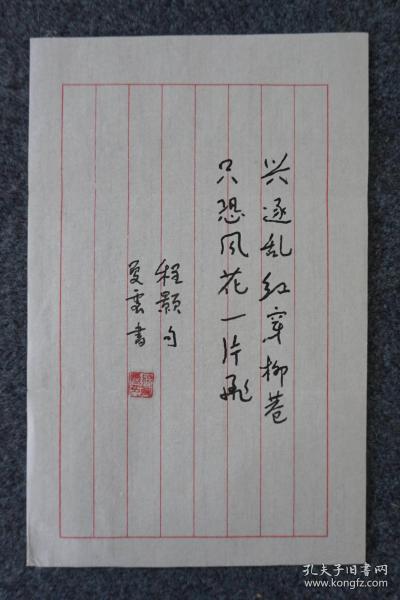 兴逐乱红穿柳巷
只恐风花一片飞
程颢句
夏云书
孔夫子旧书网
www.kongfz.com